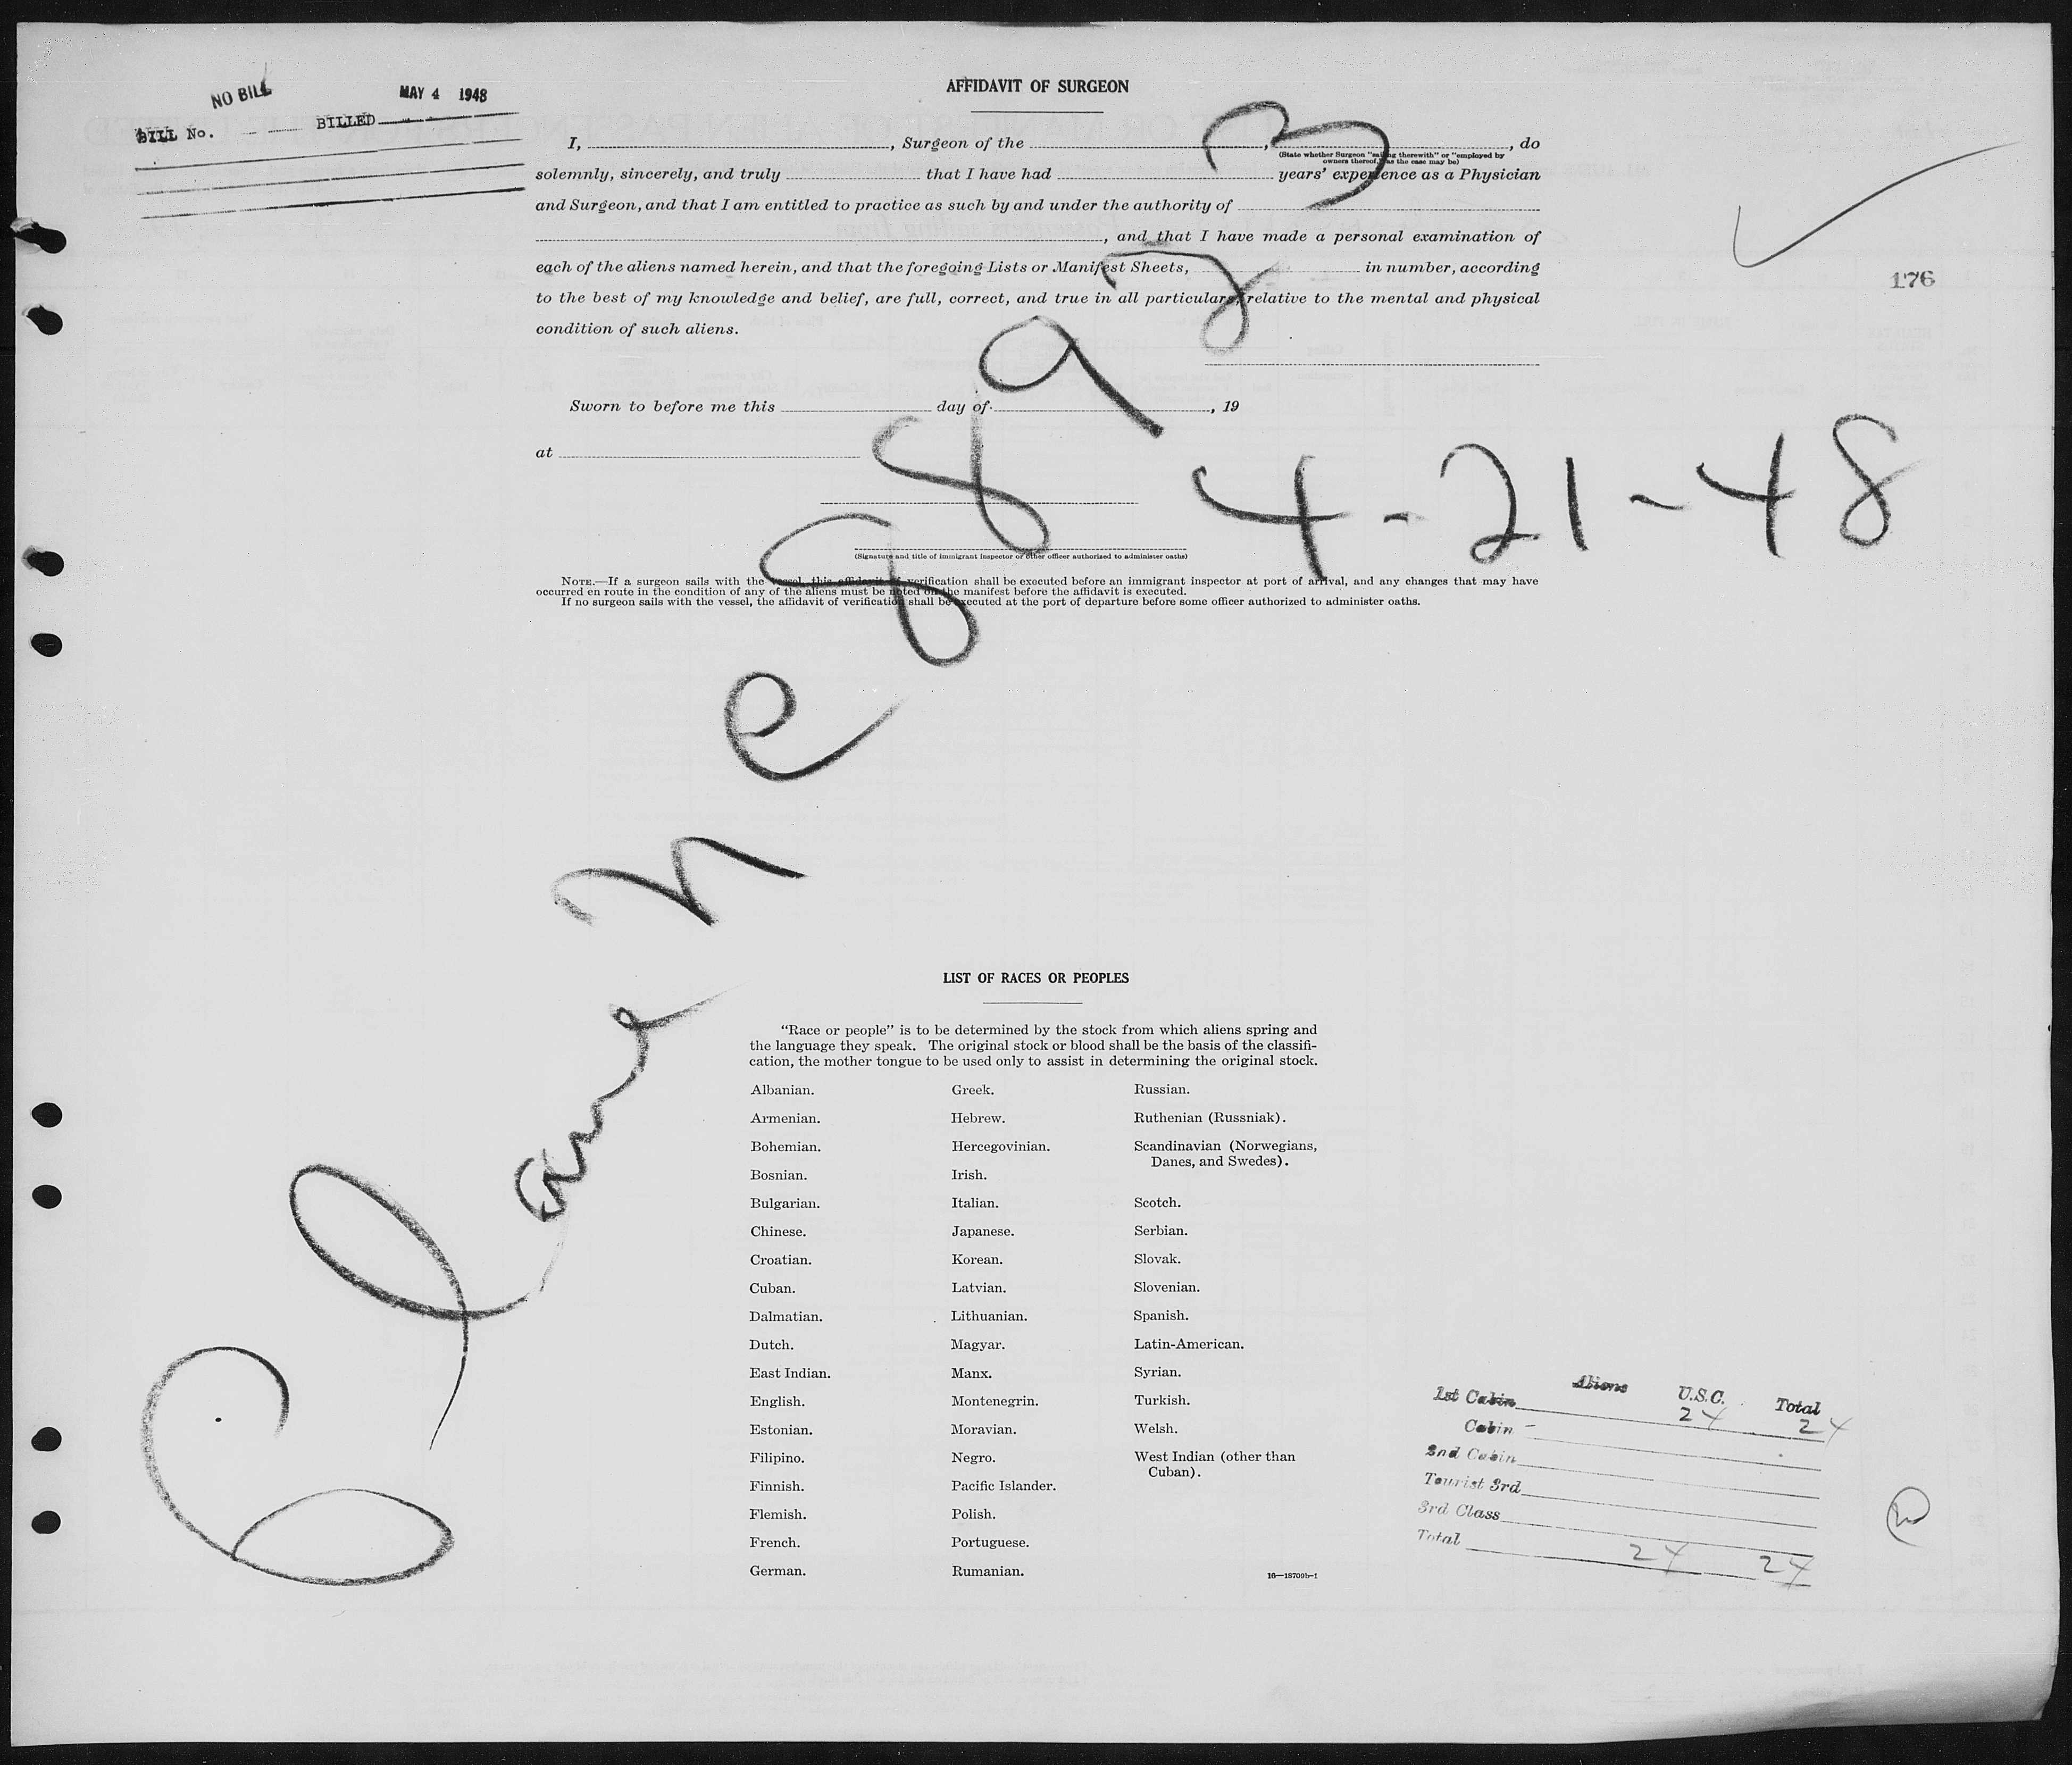 NO BILL
MAY 4 1948
BILL No. BILLED
AFFIDAVIT OF SURGEON
I, , Surgeon of the , , do
(State whether Surgeon "sailing therewith" or "employed by
owners thereof," as the case may be)
solemnly, sincerely, and truly that I have had years' experience as a Physician
and Surgeon, and that I am entitled to practice as such by and under the authority of
, and that I have made a personal examination of
each of the aliens named herein, and that the foregoing Lists or Manifest Sheets, in number, according
to the best of my knowledge and belief, are full, correct, and true in all particulars, relative to the mental and physical
condition of such aliens.
176
Sworn to before me this day of , 19
at
4-21-48
(Signature and title of immigrant inspector or other officer authorized to administer oaths)
NOTE.—If a surgeon sails with the vessel, this affidavit of verification shall be executed before an immigrant inspector at port of arrival, and any changes that may have
occurred en route in the condition of any of the aliens must be noted on the manifest before the affidavit is executed.
If no surgeon sails with the vessel, the affidavit of verification shall be executed at the port of departure before some officer authorized to administer oaths.
Plane N C 88923
LIST OF RACES OR PEOPLES
"Race or people" is to be determined by the stock from which aliens spring and
the language they speak. The original stock or blood shall be the basis of the classifi-
cation, the mother tongue to be used only to assist in determining the original stock.
Albanian.
Armenian.
Bohemian.
Bosnian.
Bulgarian.
Chinese.
Croatian.
Cuban.
Dalmatian.
Dutch.
East Indian.
English.
Estonian.
Filipino.
Finnish.
Flemish.
French.
German.
Greek.
Hebrew.
Hercegovinian.
Irish.
Italian.
Japanese.
Korean.
Latvian.
Lithuanian.
Magyar.
Manx.
Montenegrin.
Moravian.
Negro.
Pacific Islander.
Polish.
Portuguese.
Rumanian.
Russian.
Ruthenian (Russniak).
Scandinavian (Norwegians,
Danes, and Swedes).
Scotch.
Serbian.
Slovak.
Slovenian.
Spanish.
Latin-American.
Syrian.
Turkish.
Welsh.
West Indian (other than
Cuban).
16—18709b-1
Aliens U.S.C. Total
1st Cabin 24 24
Cabin
2nd Cabin
Tourist 3rd
3rd Class
Total 24 24